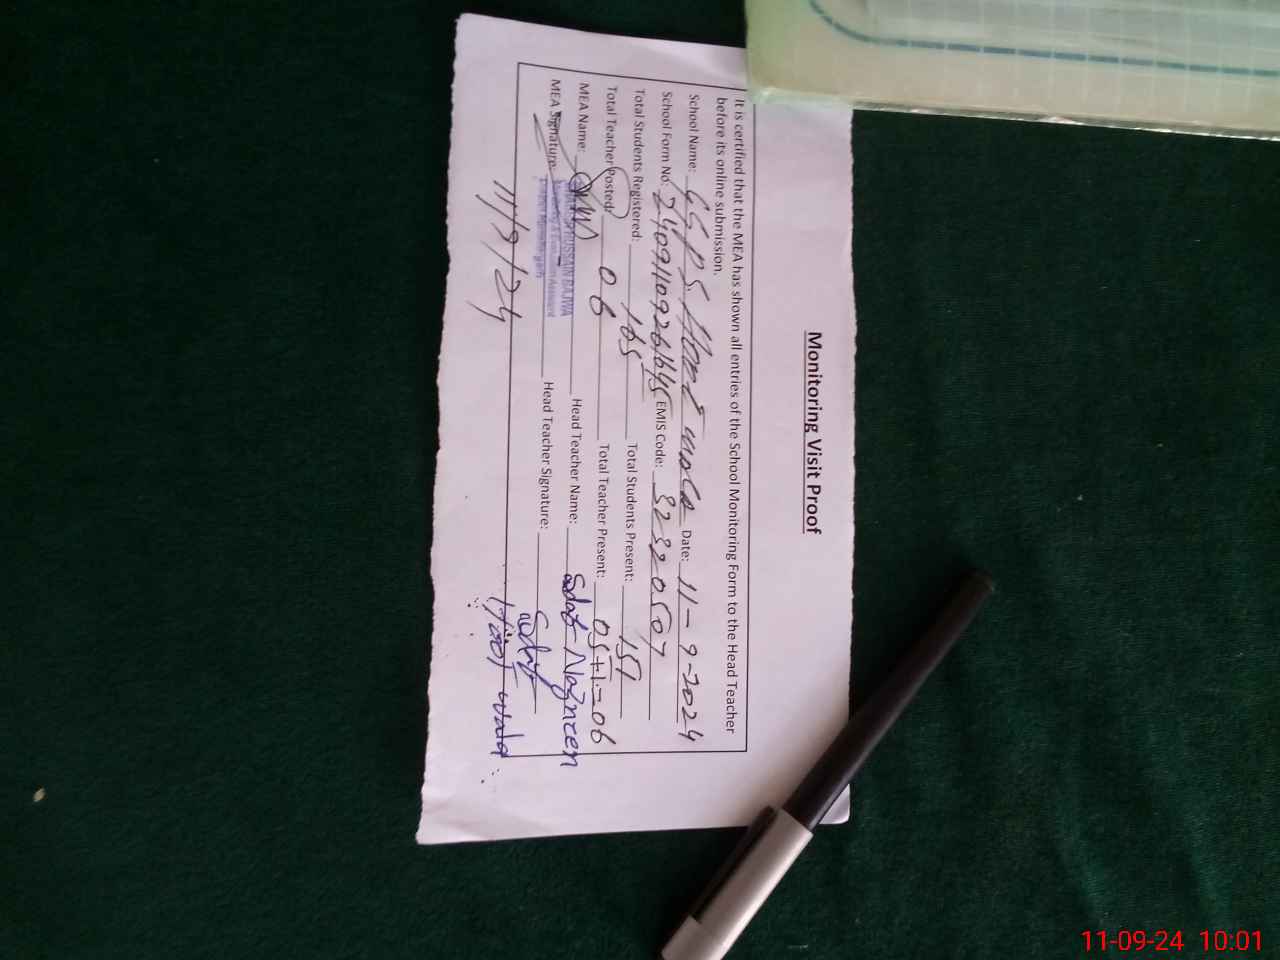 Monitoring Visit Proof
It is certified that the MEA has shown all entries of the School Monitoring Form to the Head Teacher
before its online submission.
School Name: GGPS. Hoot wala Date: 11-9-2024
School Form No: EMIS Code: 32320507
Total Students Registered: 165 Total Students Present: 151
Total Teacher Posted: 06 Total Teacher Present: 05+1=06
MEA Name: HUSSAIN BAJWA Head Teacher Name: Nazneen
MEA Signature: Monitoring & Evaluation Assistant Head Teacher Signature:
District Muzaffargarh
11/9/24 Hoot wala
11-09-24 10:01